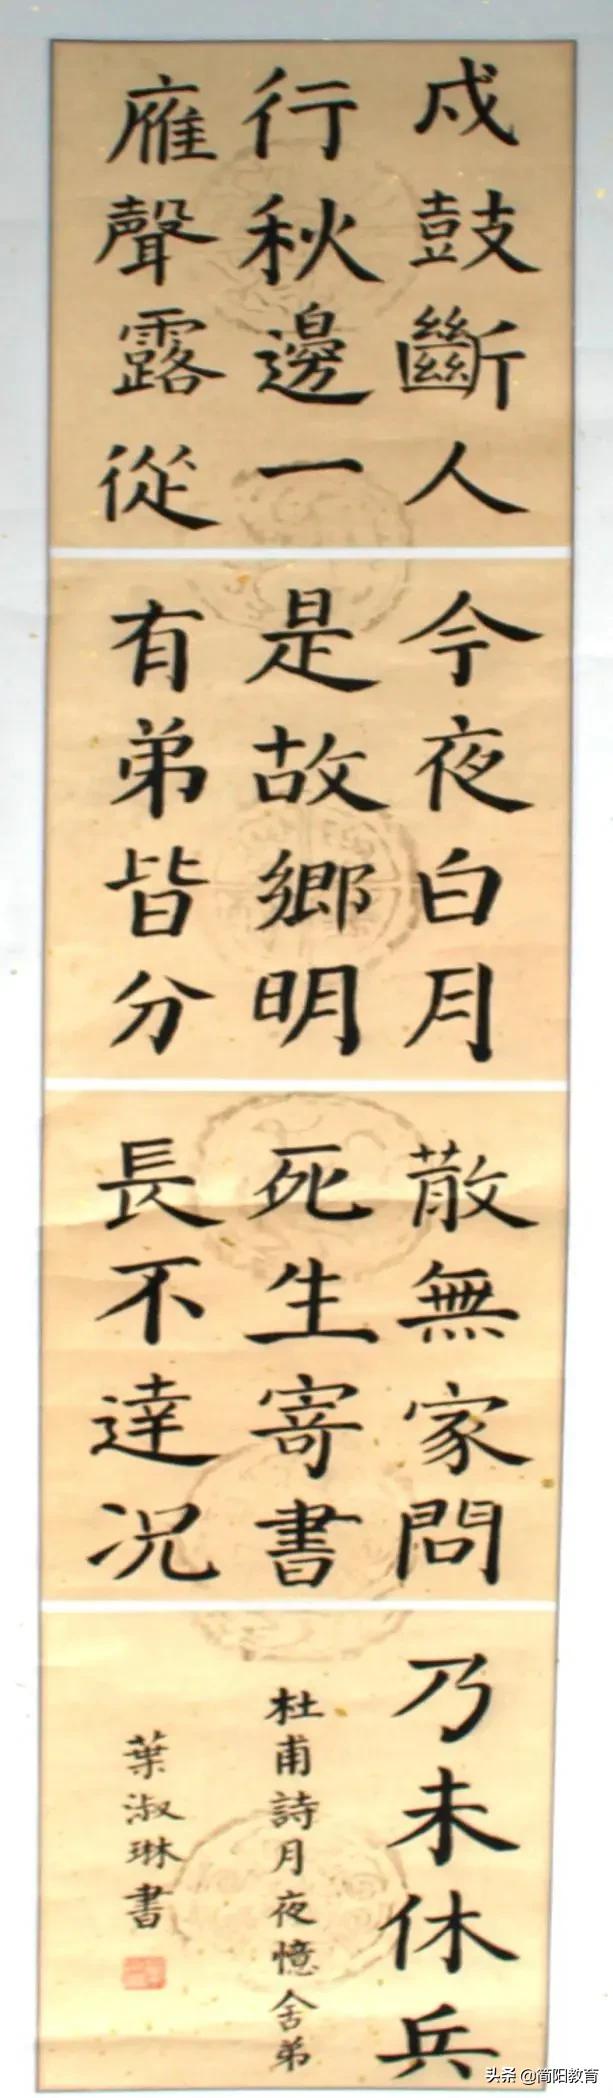 戍鼓斷人
行秋邊一
雁聲露從
今夜白月
是故鄉明
有弟皆分
散無家問
死生寄書
長不達況
乃未休兵
杜甫詩月夜憶舍弟
葉淑琳書
头条 @简阳教育